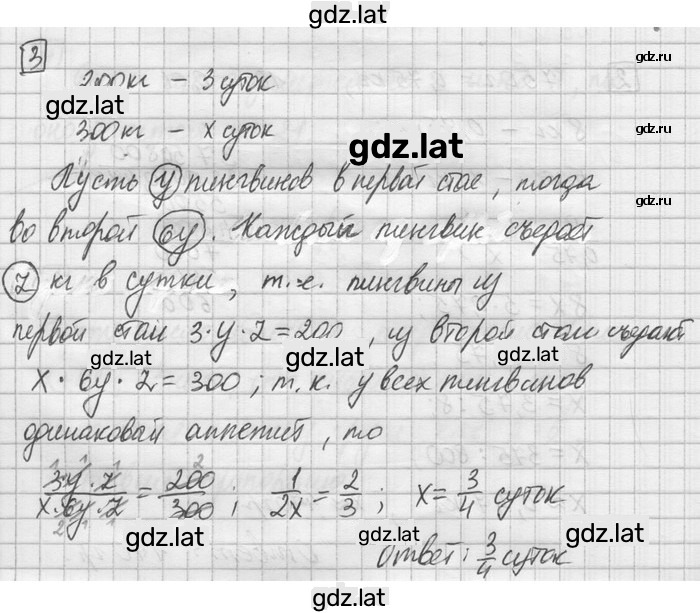 gdz.lat
3
200 кг – 3 суток
gdz.lat
gdz.lat
300 кг – x суток
gdz.lat
Пусть y пингвинов в первой стае, тогда
во второй 6y. Каждый пингвин съедает
z кг в сутки, т.е. пингвины из
первой стаи 3·y·z=200, из второй стаи съедают
gdz.lat
gdz.lat
x·6y·z=300; т.к. у всех пингвинов
одинаковый аппетит, то
3·y·z / x·6y·z = 200/300; 1/2x = 2/3; x = 3/4 суток
gdz.lat
gdz.lat
Ответ: 3/4 суток
gdz.lat